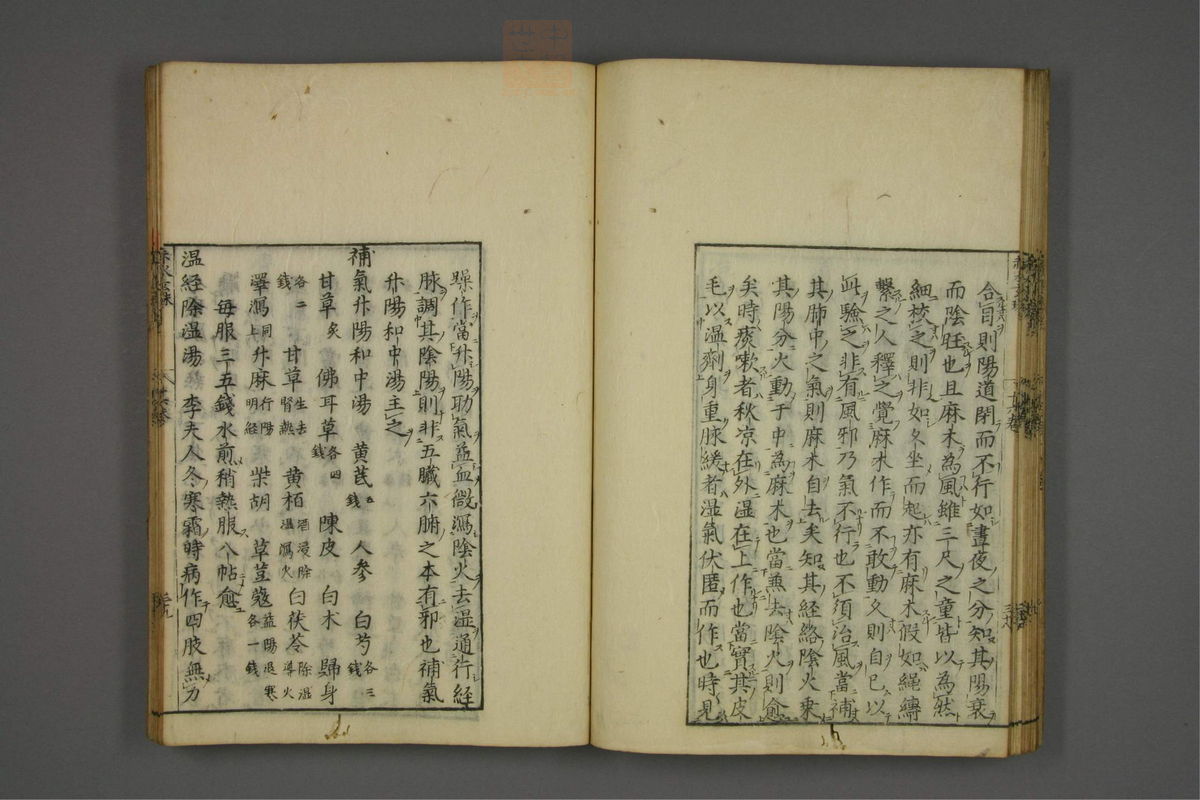 合盲則陽道閉而不行如晝夜之分知其陽衰
而陰旺也且麻木為風雖三尺之童皆以為然
細校之則非如久坐而起亦有麻木假如繩縛
繫之人釋之覺麻木作而不敢動久則自已以
此驗之非有風邪乃氣不行也不須治風當補
其肺中之氣則麻木自去矣知其経絡陰火乗
其陽分火動于中為麻木也當兼去陰火則愈
矣時痰嗽者秋凉在外湿在上作也當實其皮
毛以温劑身重脉緩者湿氣伏匿而作也時見
躁作當升陽助氣益血微瀉陰火去湿通行経
脉調其陰陽則非五臓六腑之本有邪也補氣
升陽和中湯主之
補氣升陽和中湯 黄芪五錢 人参 白芍各三錢
甘草炙 佛耳草各四錢 陳皮 白术 歸身
各二錢 甘草生去腎熱 黄栢酒浸除湿瀉火 白茯苓除湿導火
澤瀉同上 升麻行陽明経 柴胡 草荳蔻益陽退寒各一錢
毎服三五錢水煎稍熱服八帖愈
温経除湿湯 李夫人冬寒霜時病作四肢無力